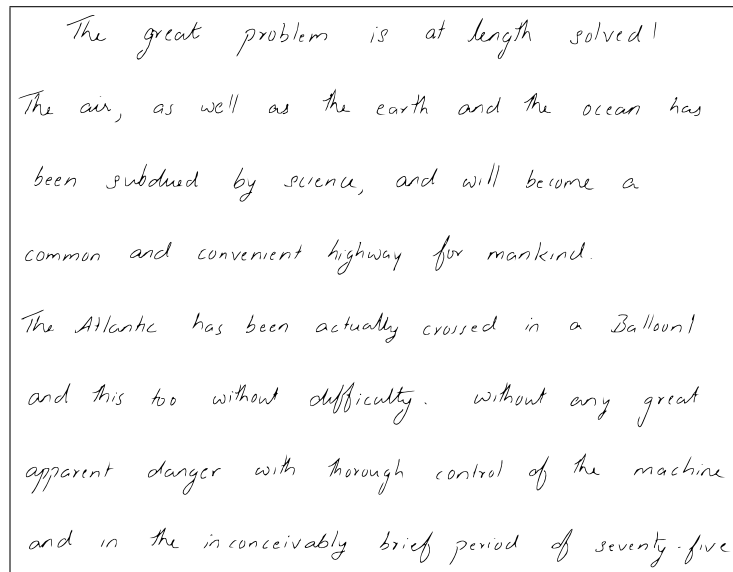 The great problem is at length solved!
The air, as well as the earth and the ocean has
been subdued by science, and will become a
common and convenient highway for mankind.
The Atlantic has been actually crossed in a Balloon!
and this too without difficulty. without any great
apparent danger with thorough control of the machine
and in the inconceivably brief period of seventy-five